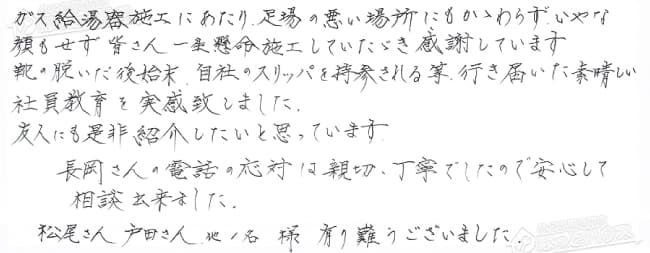 ガス給湯器施工にあたり、足場の悪い場所にもかゝわらず、いやな
顔もせず皆さん一生懸命施工していたゞき感謝しています
靴の脱いだ後始末、自社のスリッパを持参される等、行き届いた素晴しい
社員教育を実感致しました。
友人にも是非紹介したいと思っています
長岡さんの電話の応対は親切、丁寧でしたので安心して
相談出来ました。
松尾さん 戸田さん 他1名 様 有り難うございました。